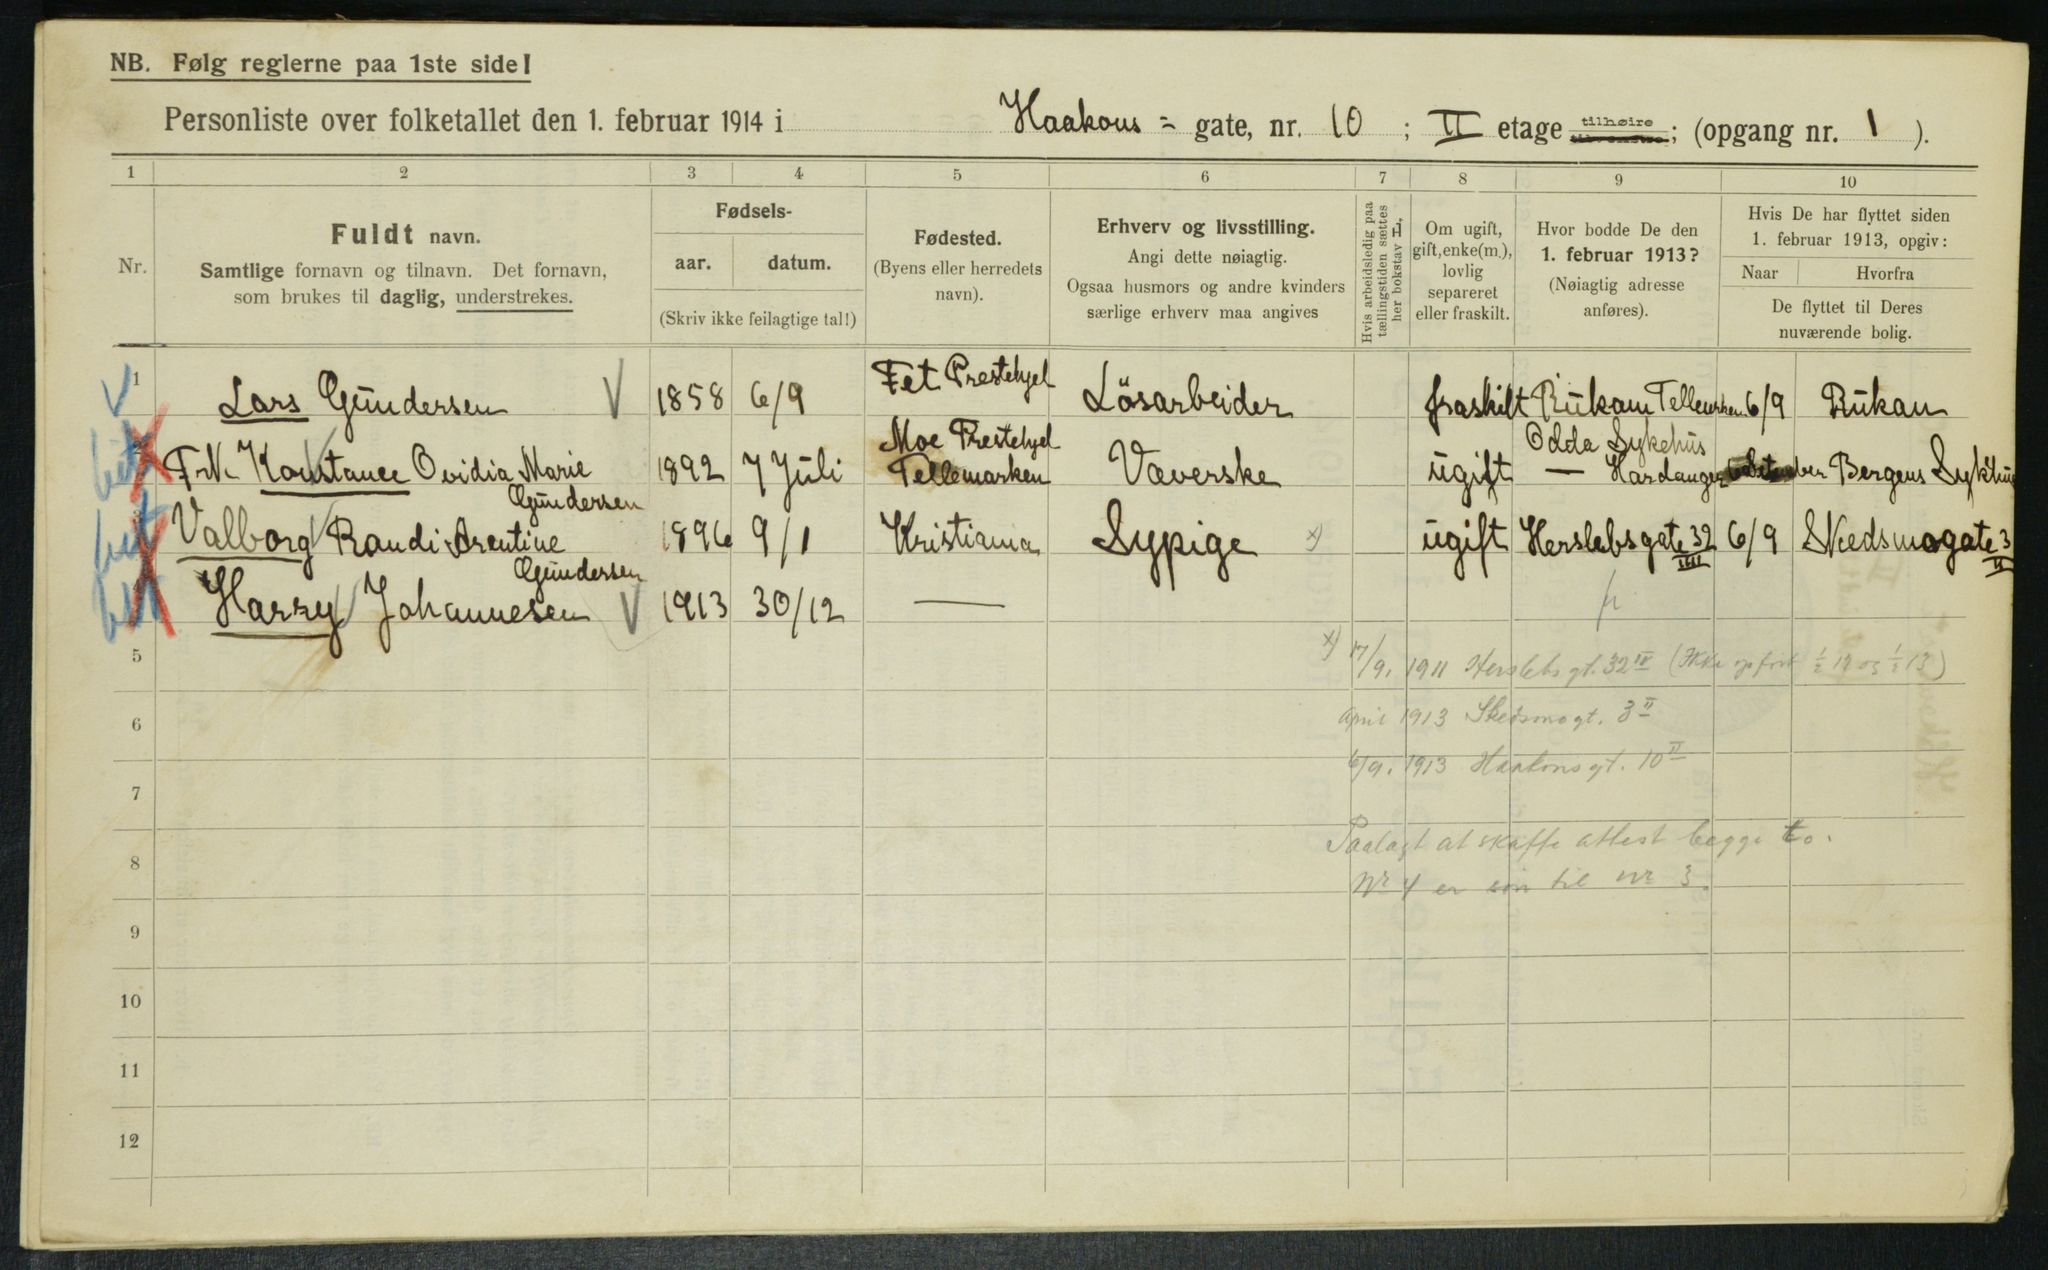 NB. Følg reglerne paa 1ste side!
Personliste over folketallet den 1. februar 1914 i Haakons - gate, nr. 10 ; II etage tilhøire ; (opgang nr. 1 ).
1 2 3 4 5 6 7 8 9 10
Nr.
Fuldt navn.
Samtlige fornavn og tilnavn. Det fornavn,
som brukes til daglig, understrekes.
Fødsels-
aar. datum.
(Skriv ikke feilagtige tal!)
Fødested.
(Byens eller herredets
navn).
Erhverv og livsstilling.
Angi dette nøiagtig.
Ogsaa husmors og andre kvinders
særlige erhverv maa angives
Hvis arbeidsledig paa
tællingstiden sættes
her bokstav L.
Om ugift,
gift, enke(m.),
lovlig
separeret
eller fraskilt.
Hvor bodde De den
1. februar 1913?
(Nøiagtig adresse
anføres).
Hvis De har flyttet siden
1. februar 1913, opgiv:
Naar Hvorfra
De flyttet til Deres
nuværende bolig.
1 Lars Gundersen 1858 6/9 Fet Prestegjel Lösarbeider fraskilt Rukan Tellemarken 6/9 Rukan
2 Frk. Konstance Ovidia Marie Gundersen 1892 7 Juli Moe Prestegjel Tellemarken Væverske ugift Odda Sykehus — Hardanger Bergens Sykehus
3 Valborg Randi Arentine Gundersen 1896 9/1 Kristiania Sypige x) ugift Herslebsgate 32 IIII 6/9 Skedsmogate 3 II
4 Harry Johannesen 1913 30/12 —
5 x) 17/9. 1911 Herslebsgt. 32 IV (Ikke opført 1/2 12 og 1/2 13)
6 April 1913 Skedsmogt. 3 II
6/9. 1913 Haakonsgt. 10 II
7
Paalagt at skaffe attest begge to.
8
Nr 4 er søn til nr 3.
9
10
11
12